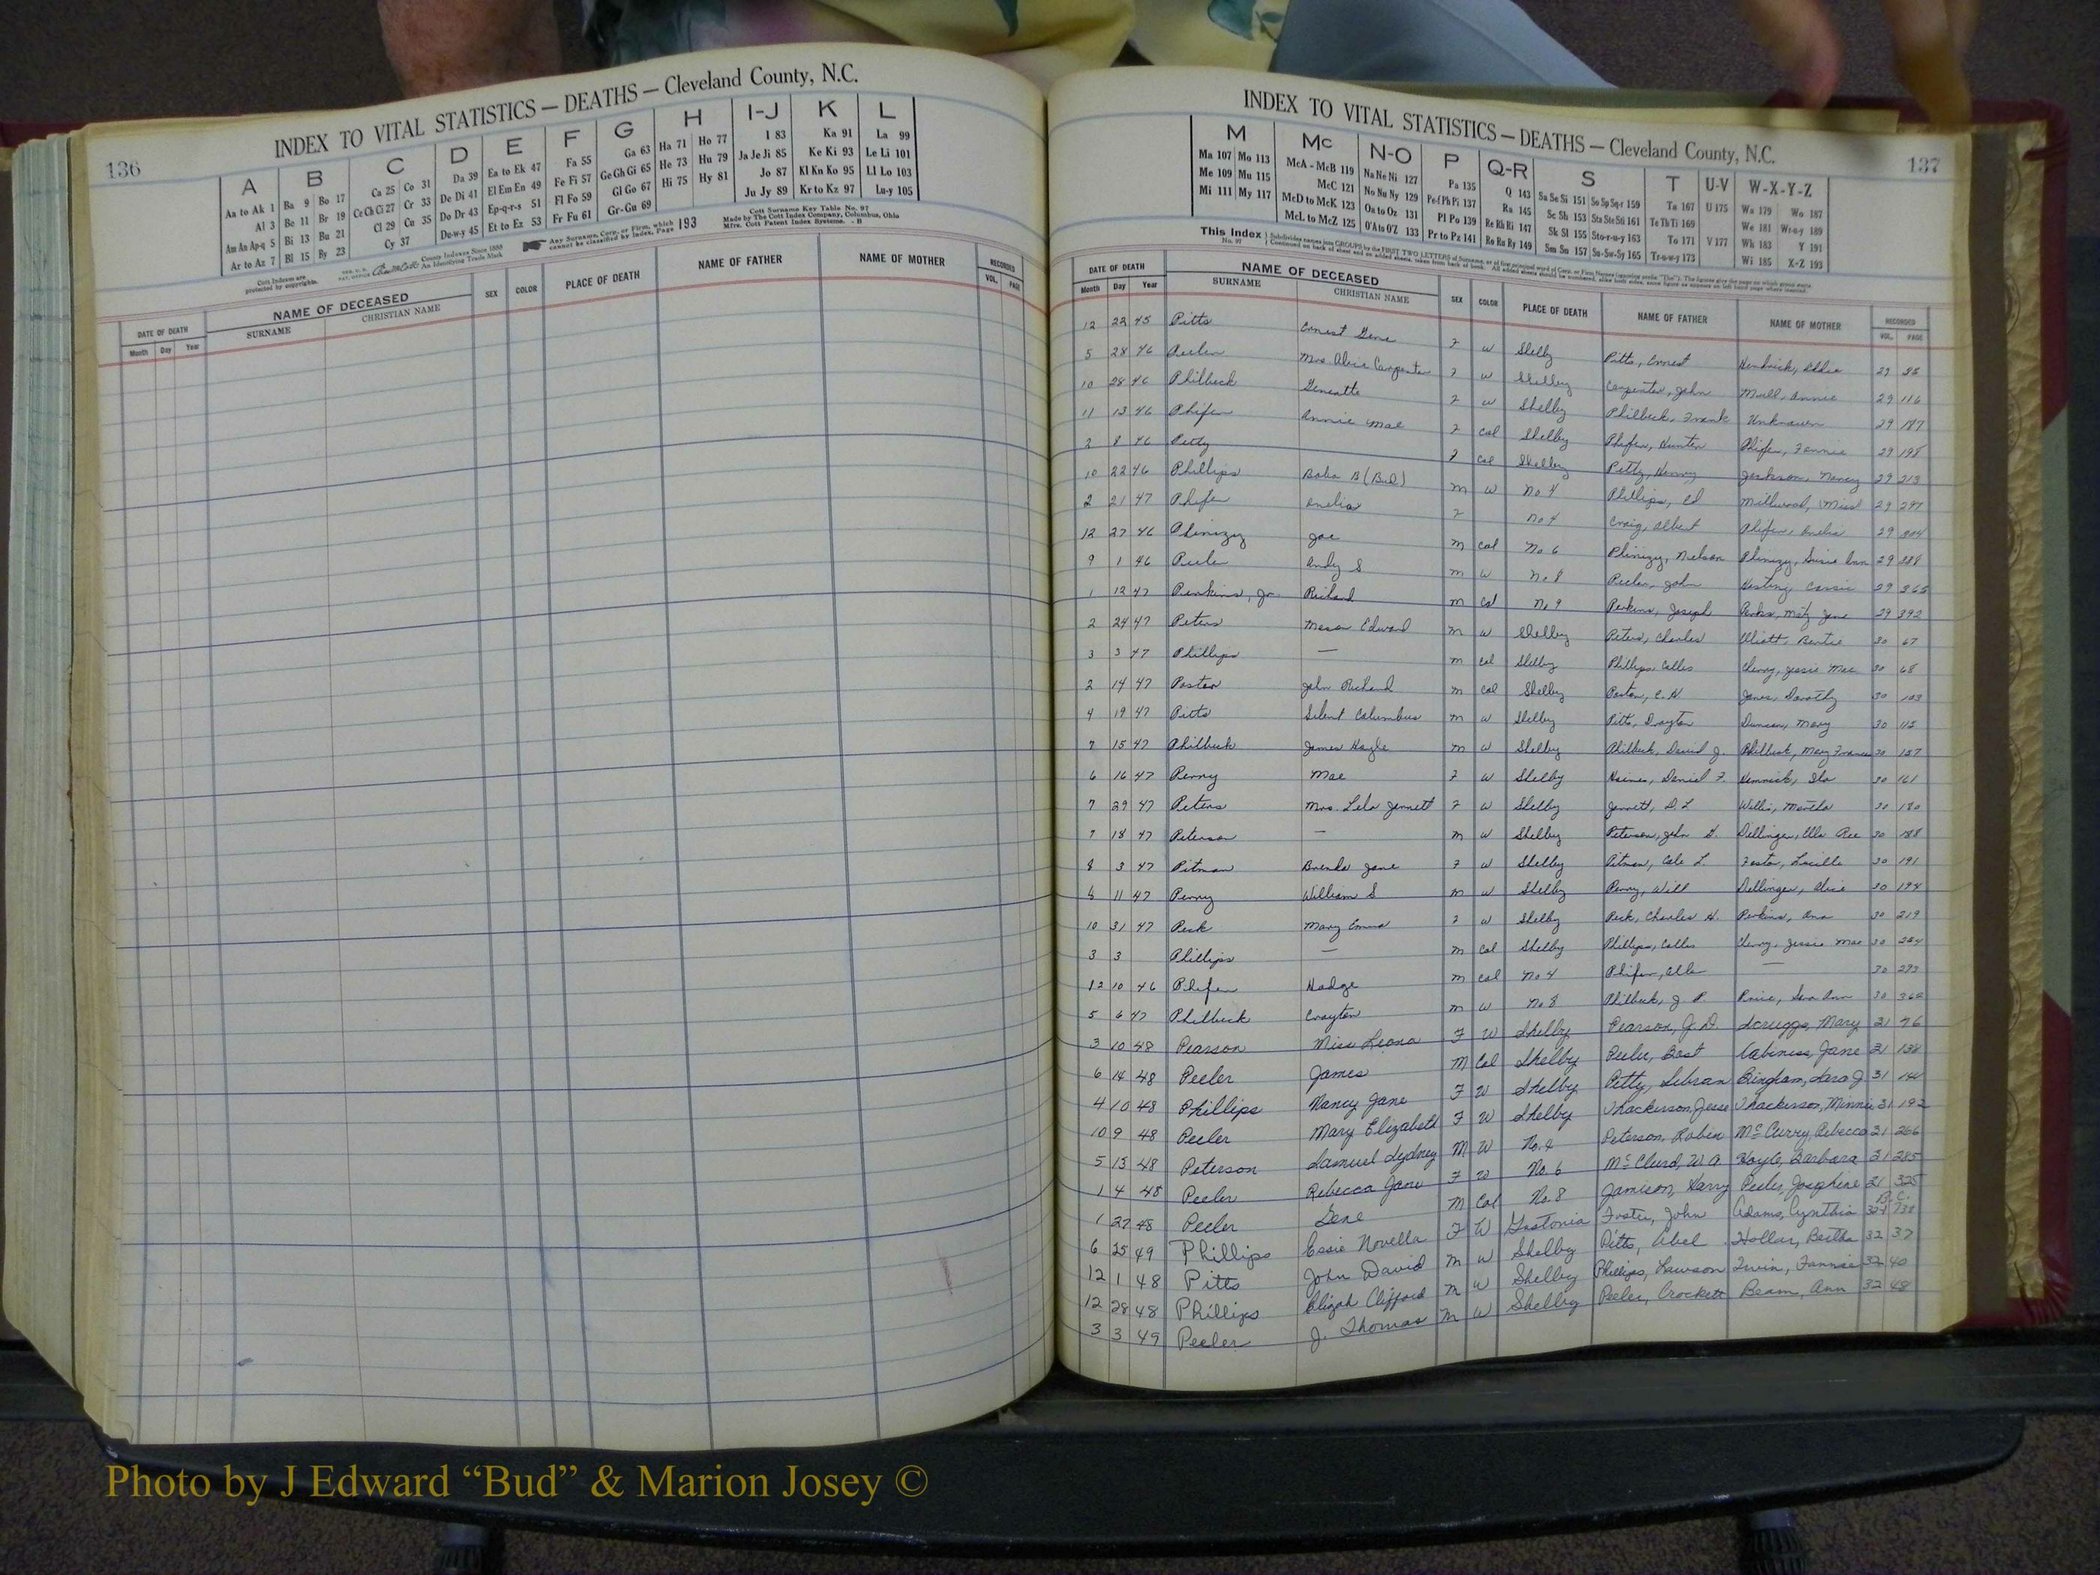 136
INDEX TO VITAL STATISTICS — DEATHS — Cleveland County, N.C.
A B C D E F G H I-J K L
Aa to Ak 1 Ba 9 Bo 17 Ca 25 Co 31 Da 39 Ea to Ek 47 Fa 55 Ga 63 Ha 71 Ho 77 I 83 Ka 91 La 99
Al 3 Be 11 Br 19 Ce Ch Ci 27 Cr 33 De Di 41 El Em En 49 Fe Fi 57 Ge Gh Gi 65 He 73 Hu 79 Ja Je Ji 85 Ke Ki 93 Le Li 101
Am An Ap-q 5 Bi 13 Bu 21 Cl 29 Cu 35 Do Dr 43 Ep-q-r-s 51 Fl Fo 59 Gl Go 67 Hi 75 Hy 81 Jo 87 Kl Kn Ko 95 Ll Lo 103
Ar to Az 7 Bl 15 By 23 Cy 37 Du-w-y 45 Et to Ez 53 Fr Fu 61 Gr-Gu 69 Ju Jy 89 Kr to Kz 97 Lu-y 105
Cott Indexes are protected by copyrights.
County Indexes Since 1888
An Identifying Trade Mark
Any Surname, Corp. or Firm, which cannot be classified by Index, Page 193
Cott Surname Key Table No. 97
Made by The Cott Index Company, Columbus, Ohio
Mfrs. Cott Patent Index Systems. - B
DATE OF DEATH NAME OF DECEASED SEX COLOR PLACE OF DEATH NAME OF FATHER NAME OF MOTHER RECORDED
Month Day Year SURNAME CHRISTIAN NAME VOL. PAGE
INDEX TO VITAL STATISTICS — DEATHS — Cleveland County, N.C.
137
M Mc N-O P Q-R S T U-V W-X-Y-Z
Ma 107 Mo 113 McA - McB 119 Na Ne Ni 127 Pa 135 Q 143 Sa Se Si 151 So Sp Sq-r 159 Ta 167 U 175 Wa 179 Wo 187
Me 109 Mu 115 McC 121 No Nu Ny 129 Pe-f Ph Pi 137 Ra 145 Sc Sh 153 Sta Ste Sti 161 Te Th Ti 169 We 181 Wr-u-y 189
Mi 111 My 117 McD to McK 123 Oa to Oz 131 Pl Po 139 Re Rh Ri 147 Sk Sl 155 Sto-r-u-y 163 To 171 V 177 Wh 183 Y 191
McL to McZ 125 O'A to O'Z 133 Pr to Pz 141 Ro Ru Ry 149 Sm Sn 157 Su-Sw-Sy 165 Tr-u-w-y 173 Wi 185 X-Z 193
This Index No. 97
DATE OF DEATH NAME OF DECEASED SEX COLOR PLACE OF DEATH NAME OF FATHER NAME OF MOTHER RECORDED
Month Day Year SURNAME CHRISTIAN NAME VOL. PAGE
12 22 45 Pitts Ernest Gene W Shelby Pitts, Ernest Hendrick, 29
5 28 46 Peeler Mrs. Alice Carpenter W Shelby Carpenter, John Mull, Annie 29 116
10 28 46 Philbeck W Shelby Philbeck, Frank Unknown 29 187
11 13 46 Phifer Annie Mae Col Shelby Phifer, Hunter Phifer, Fannie 29 198
2 8 46 Petty Col Shelby Petty, Henry Jackson, Nancy 29 213
10 22 46 Phillips M W No 4 Phillips, Ed 29 297
2 21 47 Phifer No 4 Craig, Albert 29 304
12 27 46 Phinizy Joe M Col No 6 Phinizy, Nelson Phinizy, Susie Ann 29
9 1 46 Peeler Andy S M W No 8 Peeler, John 29 365
1 12 47 Perkins, Jr. Richard M Col No 9 Perkins, Joseph 29 392
2 24 47 Peters Mason Edward M W Shelby Peters, Charles 30 67
3 3 47 Phillips — M Col Shelby Phillips, Calles Cherry, Jessie Mae 30 68
2 14 47 Poston John Richard M Col Shelby Poston, C. H. Jones, Dorothy 30 103
4 19 47 Pitts Silent Columbus M W Shelby Pitts, Drayton Duncan, Mary 30 112
7 15 47 Philbeck James Hoyle M W Shelby Philbeck, David J. Philbeck, Mary Frances 30 157
6 16 47 Penny Mae F W Shelby Haines, Daniel F. 30 161
7 29 47 Peters Mrs. Lela Jennett F W Shelby Jennett, D. L Willis, Martha 30 180
7 18 47 Peterson — M W Shelby Peterson, John Dellinger, 30 188
8 3 47 Pitman Brenda Jane F W Shelby Pitman, Cole L. Foster, Lucille 30 191
11 47 Penny William S M W Shelby Penny, Will Dellinger, Alice 30 194
10 31 47 Peck Mary Emma F W Shelby Peck, Charles H. Perkins, Ann 30 219
3 3 Phillips — M Col Shelby Phillips, Calles Cherry, Jessie Mae 30 254
12 10 46 Phifer Hodge M Col No 4 Phifer, — 30 293
5 6 47 Philbeck Crayton M W No 8 Philbeck, J. P. 30 362
3 10 48 Pearson Miss Leona F W Shelby Pearson, J. D. Scruggs, Mary 31 76
6 14 48 Peeler James M Col Shelby Peeler, Best Cabiness, Jane 31 138
4 10 48 Phillips Nancy Jane F W Shelby Petty, Sebran Bingham, Sara J 31 141
10 9 48 Peeler Mary Elizabeth F W Shelby Thackerson, Jesse Thackerson, Minnie 31 192
5 13 48 Peterson Samuel Sydney M W No. 4 Peterson, Robin McCurry, Rebecca 31 266
1 4 48 Peeler Rebecca Jane F W No. 6 McClurd, W. A Hoyle, Barbara 31 285
1 27 48 Peeler Gene M Col No. 8 Jamison, Harry Peeler, Josephine 31 325
6 25 49 Phillips Essie Novella F W Gastonia Foster, John Adams, Cynthia B.C.
12 1 48 Pitts John David M W Shelby Pitts, Abel Hollar, Bertha 32 37
12 28 48 Phillips Elizah Clifford M W Shelby Phillips, Lawson Irvin, Fannie 32 40
3 3 49 Peeler J. Thomas M W Shelby Peeler, Crockett Beam, Ann 32 48
Photo by J Edward “Bud” & Marion Josey ©